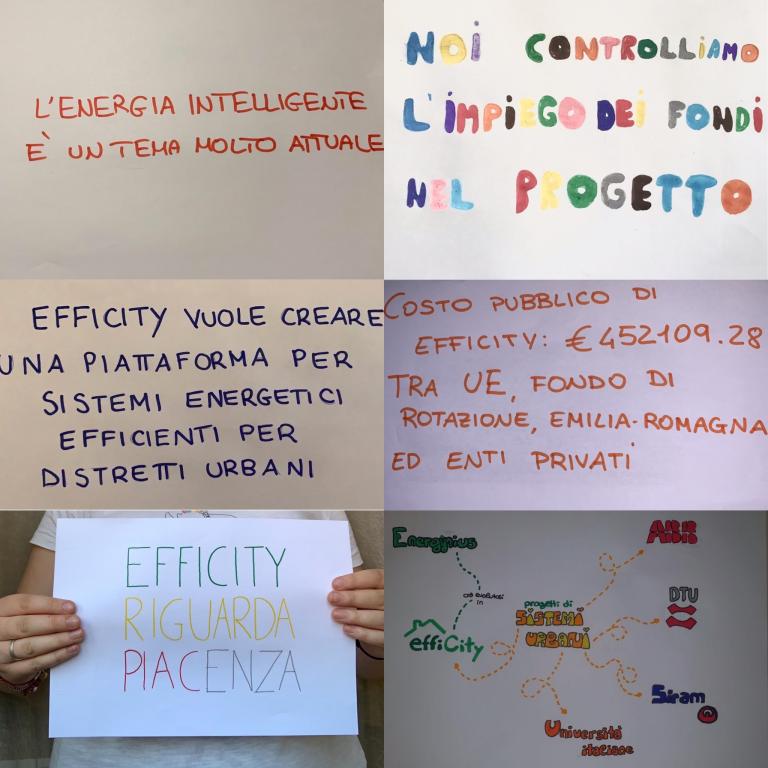 L'ENERGIA INTELLIGENTE
È UN TEMA MOLTO ATTUALE
NOI CONTROLLIAMO
L'IMPIEGO DEI FONDI
NEL PROGETTO
EFFICITY VUOLE CREARE
UNA PIATTAFORMA PER
SISTEMI ENERGETICI
EFFICIENTI PER
DISTRETTI URBANI
COSTO PUBBLICO DI
EFFICITY: €452109.28
TRA UE, FONDO DI
ROTAZIONE, EMILIA-ROMAGNA
ED ENTI PRIVATI
EFFICITY
RIGUARDA
PIACENZA
Energinius
in
effiCity
progetti di
SISTEMI
URBANI
DTU
Siram
Università
italiane